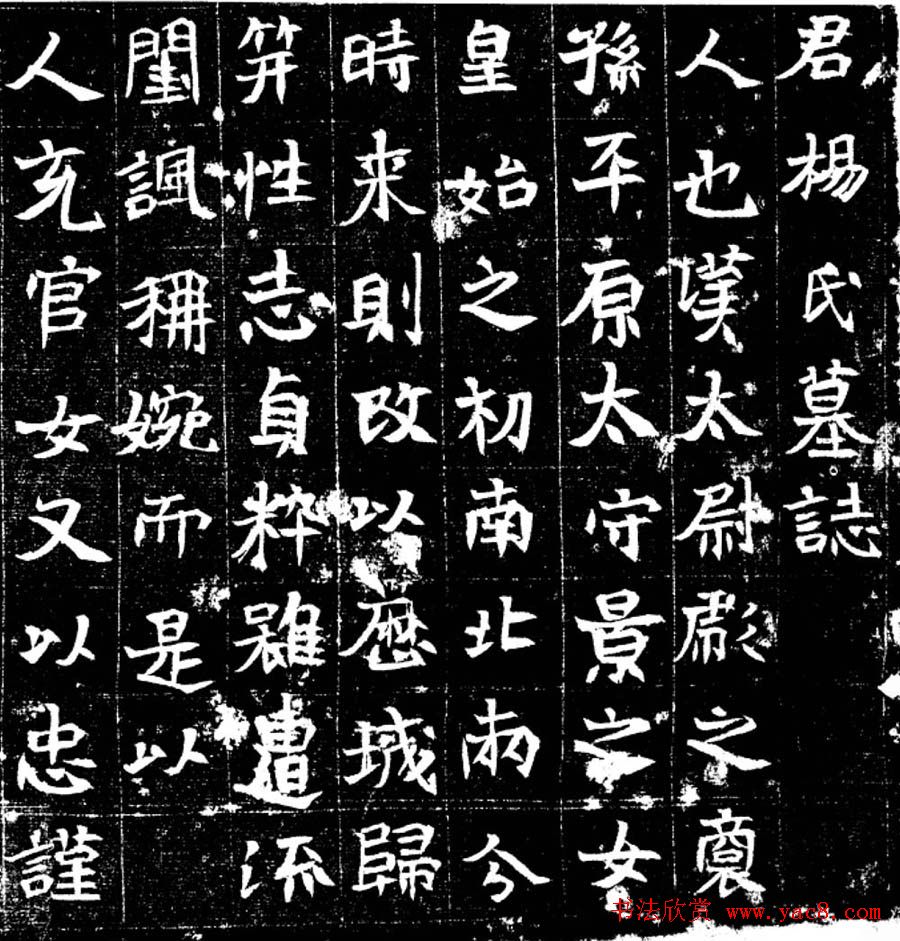 君楊氏墓誌
人也漢太尉彪之裔
孫平原太守景之女
皇始之初南北兩分
時来則改以歷城歸
笄性志貞粹雖遭流
闈諷稱婉而是以
人充官女又以忠謹
书法欣赏 www.yac8.com